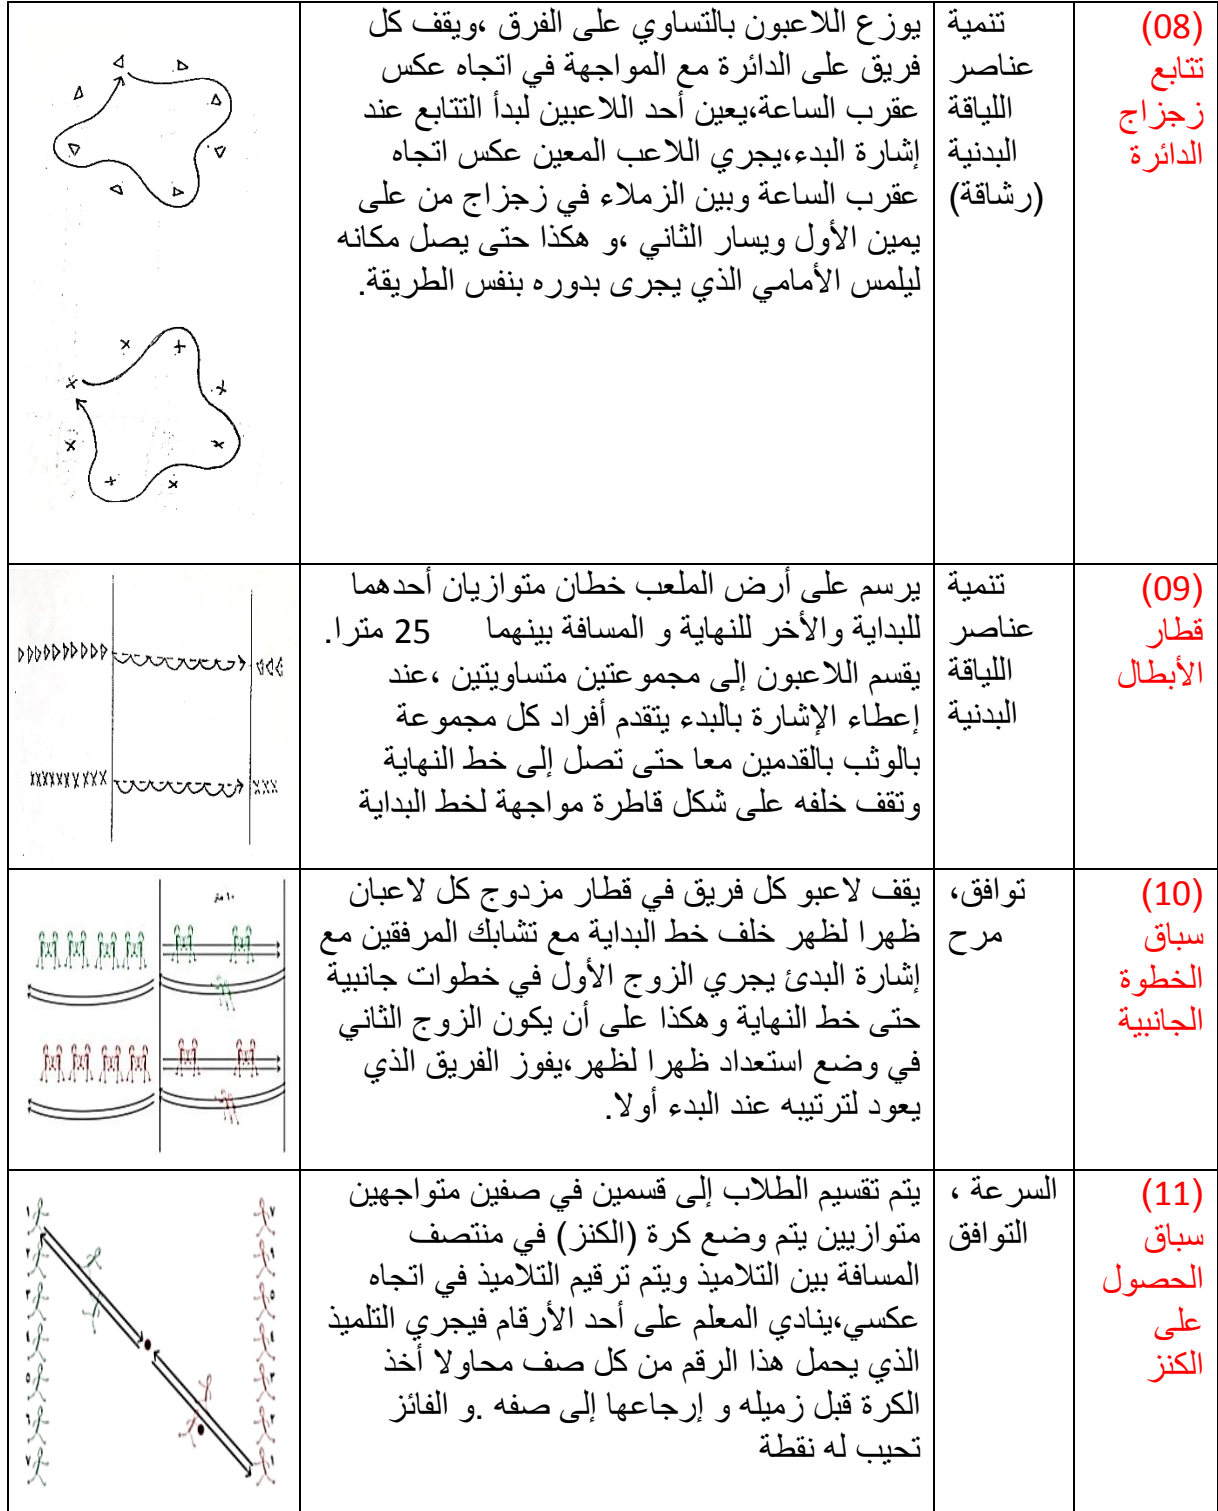 (08)
تتابع
زجزاج
الدائرة
تنمية
عناصر
اللياقة
البدنية
(رشاقة)
يوزع اللاعبون بالتساوي على الفرق ،ويقف كل
فريق على الدائرة مع المواجهة في اتجاه عكس
عقرب الساعة،يعين أحد اللاعبين لبدأ التتابع عند
إشارة البدء،يجري اللاعب المعين عكس اتجاه
عقرب الساعة وبين الزملاء في زجزاج من على
يمين الأول ويسار الثاني ،و هكذا حتى يصل مكانه
ليلمس الأمامي الذي يجرى بدوره بنفس الطريقة.
(09)
قطار
الأبطال
تنمية
عناصر
اللياقة
البدنية
يرسم على أرض الملعب خطان متوازيان أحدهما
للبداية والأخر للنهاية و المسافة بينهما 25 مترا.
يقسم اللاعبون إلى مجموعتين متساويتين ،عند
إعطاء الإشارة بالبدء يتقدم أفراد كل مجموعة
بالوثب بالقدمين معا حتى تصل إلى خط النهاية
وتقف خلفه على شكل قاطرة مواجهة لخط البداية
(10)
سباق
الخطوة
الجانبية
توافق،
مرح
يقف لاعبو كل فريق في قطار مزدوج كل لاعبان
ظهرا لظهر خلف خط البداية مع تشابك المرفقين مع
إشارة البدئ يجري الزوج الأول في خطوات جانبية
حتى خط النهاية وهكذا على أن يكون الزوج الثاني
في وضع استعداد ظهرا لظهر،يفوز الفريق الذي
يعود لترتيبه عند البدء أولا.
١٠ متر
(11)
سباق
الحصول
على
الكنز
السرعة ،
التوافق
يتم تقسيم الطلاب إلى قسمين في صفين متواجهين
متوازيين يتم وضع كرة (الكنز) في منتصف
المسافة بين التلاميذ ويتم ترقيم التلاميذ في اتجاه
عكسي،ينادي المعلم على أحد الأرقام فيجري التلميذ
الذي يحمل هذا الرقم من كل صف محاولا أخذ
الكرة قبل زميله و إرجاعها إلى صفه .و الفائز
تحيب له نقطة